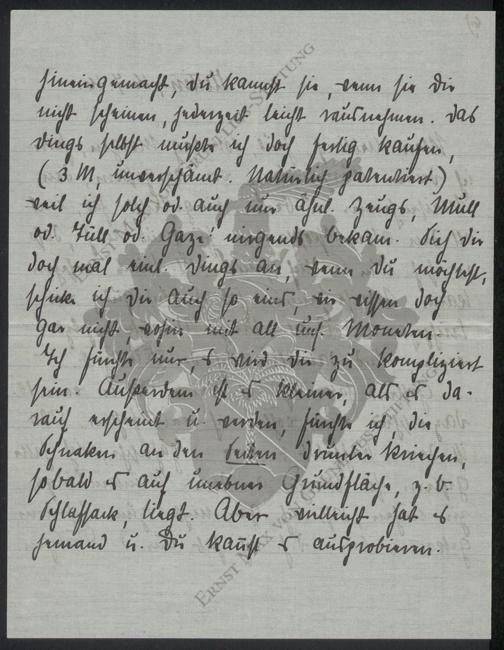 hineingemacht, du kannst sie, wenn sie dir
nicht scheinen, jederzeit leicht rausnehmen. Das
Dings selbst mußte ich doch fertig kaufen,
(3 M, unverschämt. Natürlich patentiert.)
weil ich solch od. auch nur ähnl. Zeugs, Mull
od. Tüll od. Gaze nirgends bekam. Sieh dir
doch mal einl. Dings an, wenn du möchtest,
schicke ich dir auch so eins, wir wissen doch
gar nicht wohin mit all uns. Moneten.
Ich fürchte nur, es wird dir zu kompliziert
sein. Außerdem ist es kleiner, als es da-
rauf erscheint u. werden, fürchte ich, die
Schnaken an den Seiten drunter kriechen,
sobald es auf unebner Grundfläche, z. B.
Schlafsack, liegt. Aber vielleicht hat es
jemand u. Du kannst es ausprobieren.
ERNST MAX VON GRUNELIUS-STIFTUNG